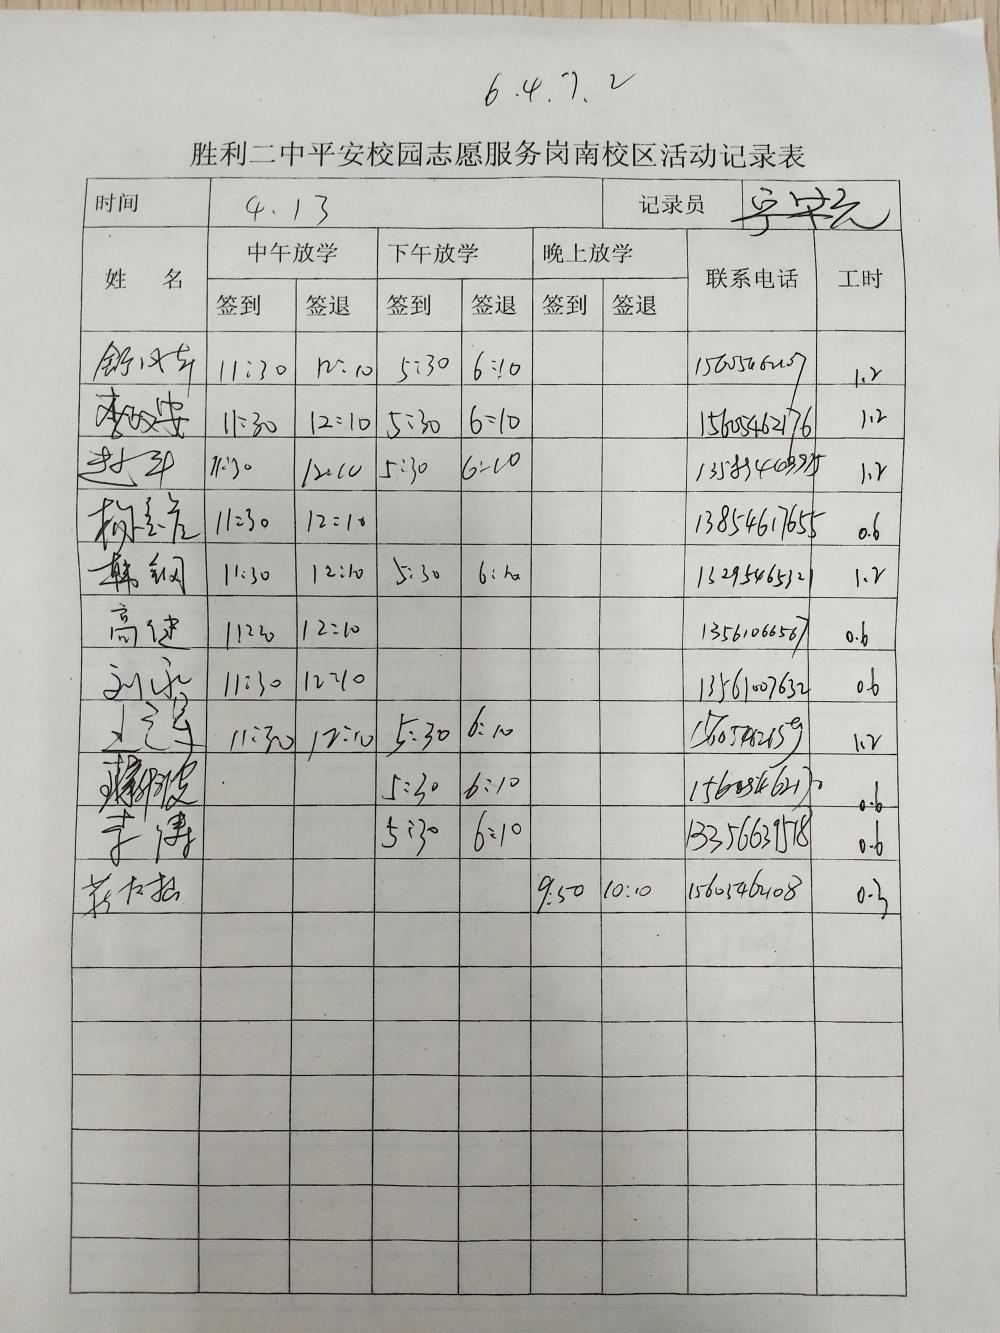 6.4.7.2
胜利二中平安校园志愿服务岗南校区活动记录表
时间 4.13 记录员
姓 名 中午放学 下午放学 晚上放学 联系电话 工时
签到 签退 签到 签退 签到 签退
11:30 12:10 5:30 6:10 1.2
11:30 12:10 5:30 6:10 15605462176 1.2
11:30 12:10 5:30 6:10 1.2
11:30 12:10 13854617655 0.6
韩钢 11:30 12:10 5:30 6:10 13295465321 1.2
高建 11:30 12:10 13561066567 0.6
刘永 11:30 12:10 13561007632 0.6
11:30 12:10 5:30 6:10 15605462159 1.2
5:30 6:10 0.6
李涛 5:30 6:10 13356639518 0.6
9:50 10:10 15605462108 0.3